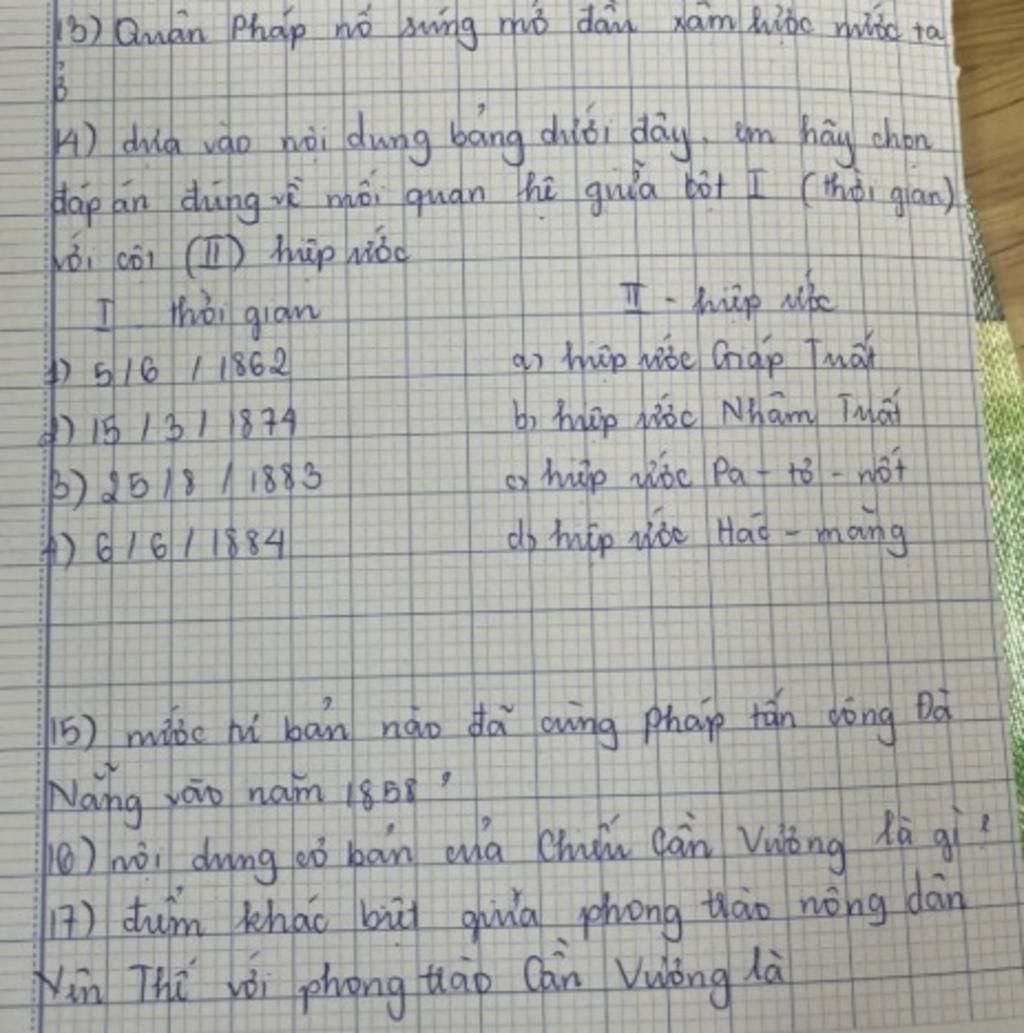 13) Quân Pháp nổ súng mở đầu xâm lược nước ta
ở
14) dựa vào nội dung bảng dưới đây. em hãy chọn
đáp án đúng về mối quan hệ giữa cột I (thời gian)
với cột (II) hiệp ước
I thời gian II - hiệp ước
1) 5/6/1862 a) hiệp ước Giáp Tuất
2) 15/3/1874 b) hiệp ước Nhâm Tuất
3) 25/8/1883 c) hiệp ước Pa-tơ-nốt
4) 6/6/1884 d) hiệp ước Hác-măng
15) nước tư bản nào đã cùng Pháp tấn công Đà
Nẵng vào năm 1858?
16) nội dung cơ bản của Chiếu Cần Vương là gì?
17) điểm khác biệt giữa phong trào nông dân
Yên Thế với phong trào Cần Vương là